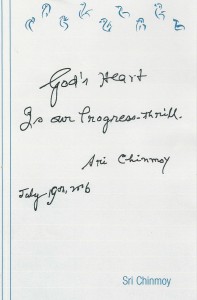 God's Heart
Is our Progress-Thrill.
Sri Chinmoy
July 19th, 2006
Sri Chinmoy